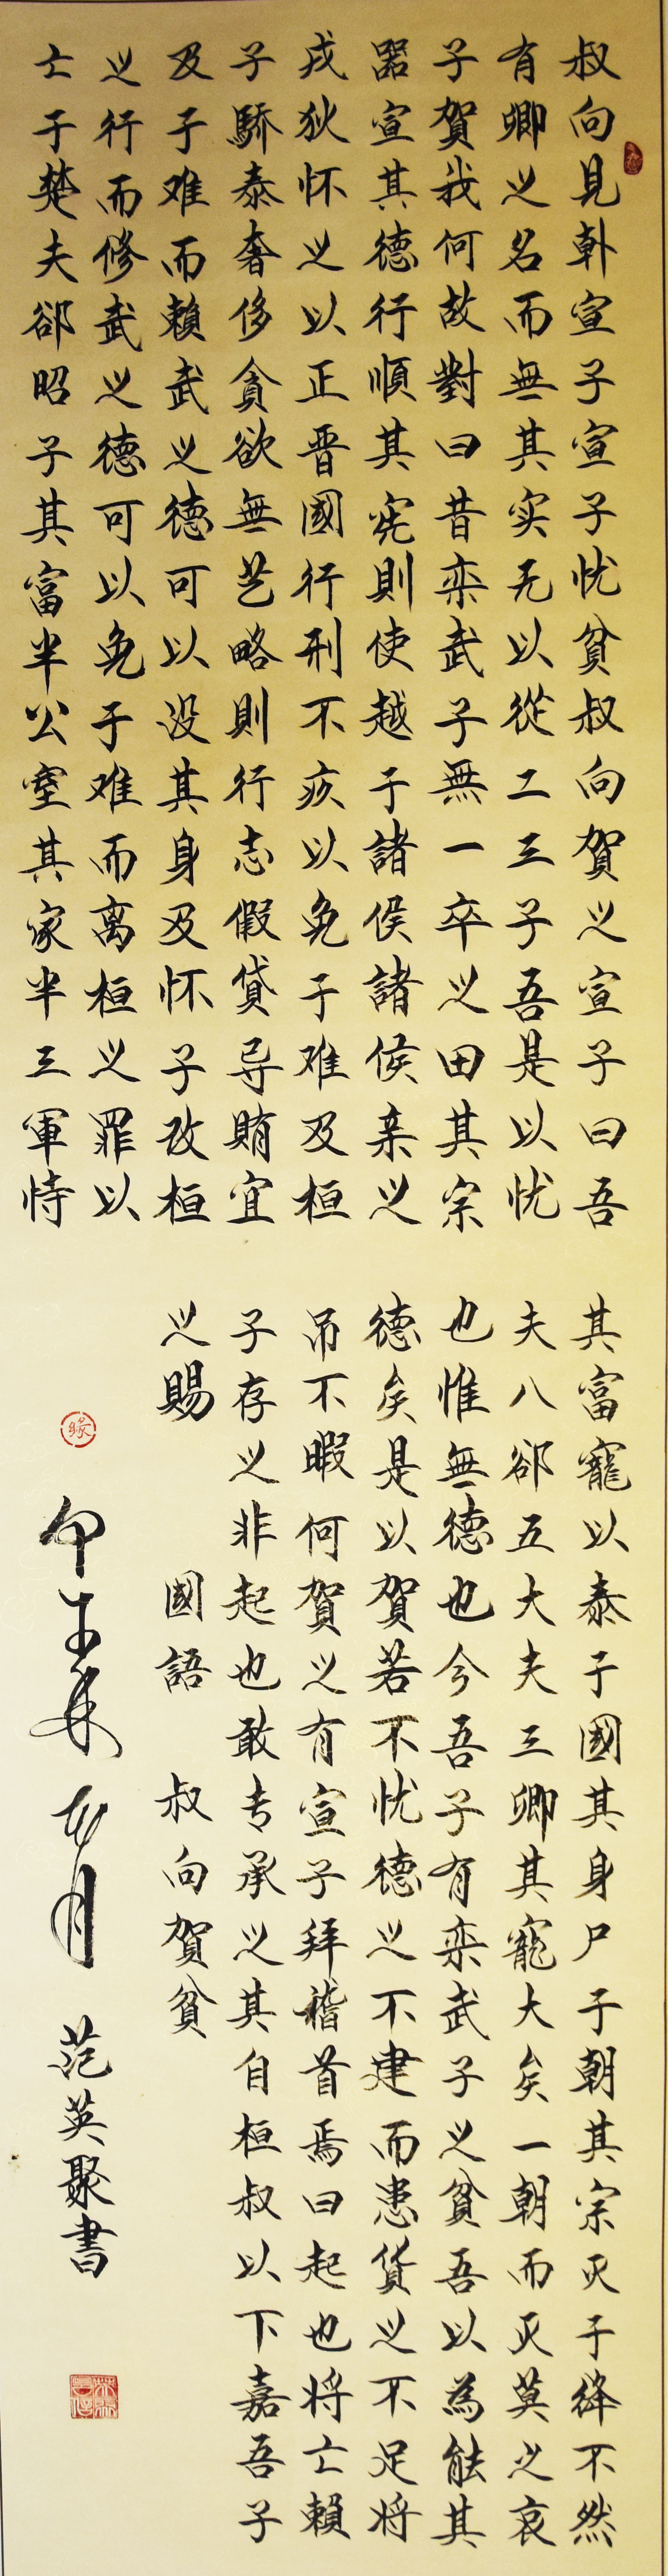 叔向見韩宣子宣子忧貧叔向賀之宣子曰吾
有卿之名而無其实无以從二三子吾是以忧
子賀我何故對曰昔栾武子無一卒之田其宗
器宣其德行順其宪則使越于諸侯諸侯亲之
戎狄怀之以正晋國行刑不疚以免于难及桓
子驕泰奢侈貪欲無艺略則行志假貸导賄宜
及于难而賴武之德可以没其身及怀子改桓
之行而修武之德可以免于难而离桓之罪以
亡于楚夫郤昭子其富半公室其家半三軍恃
其富寵以泰于國其身尸于朝其宗灭于絳不然
夫八郤五大夫三卿其寵大矣一朝而灭莫之哀
也惟無德也今吾子有栾武子之貧吾以為能其
德矣是以賀若不忧德之不建而患貨之不足将
吊不暇何賀之有宣子拜稽首焉曰起也将亡賴
子存之非起也敢专承之其自桓叔以下嘉吾子
之賜 國語 叔向賀貧
缘
甲午年 月 范英聚書